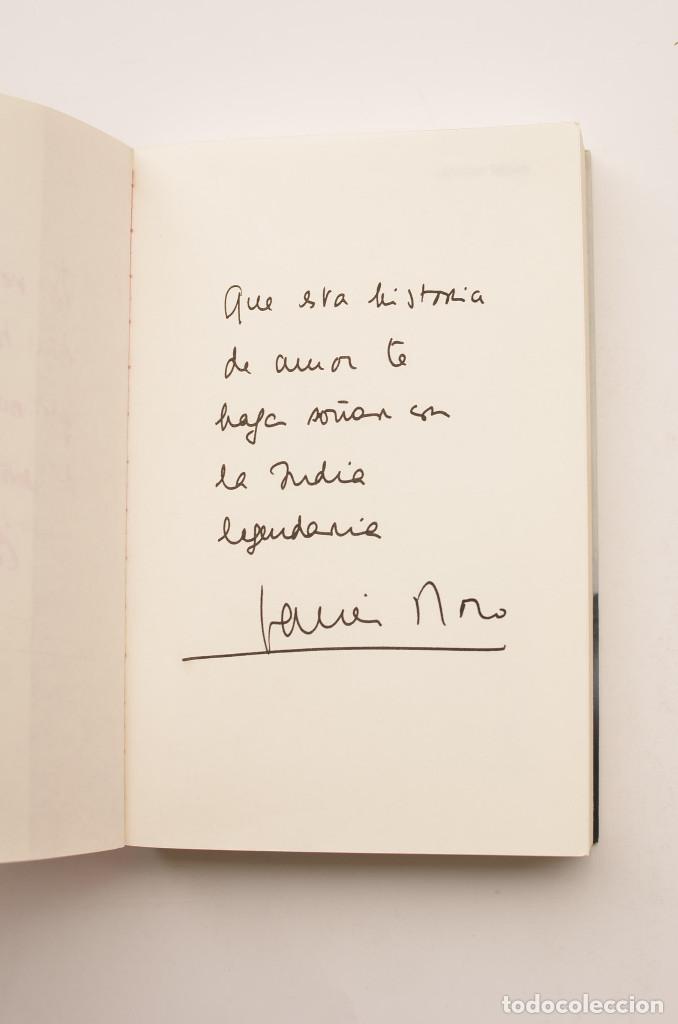 Que esta historia
de amor te
haga soñar con
la India
legendaria
Javier Moro
todocoleccion